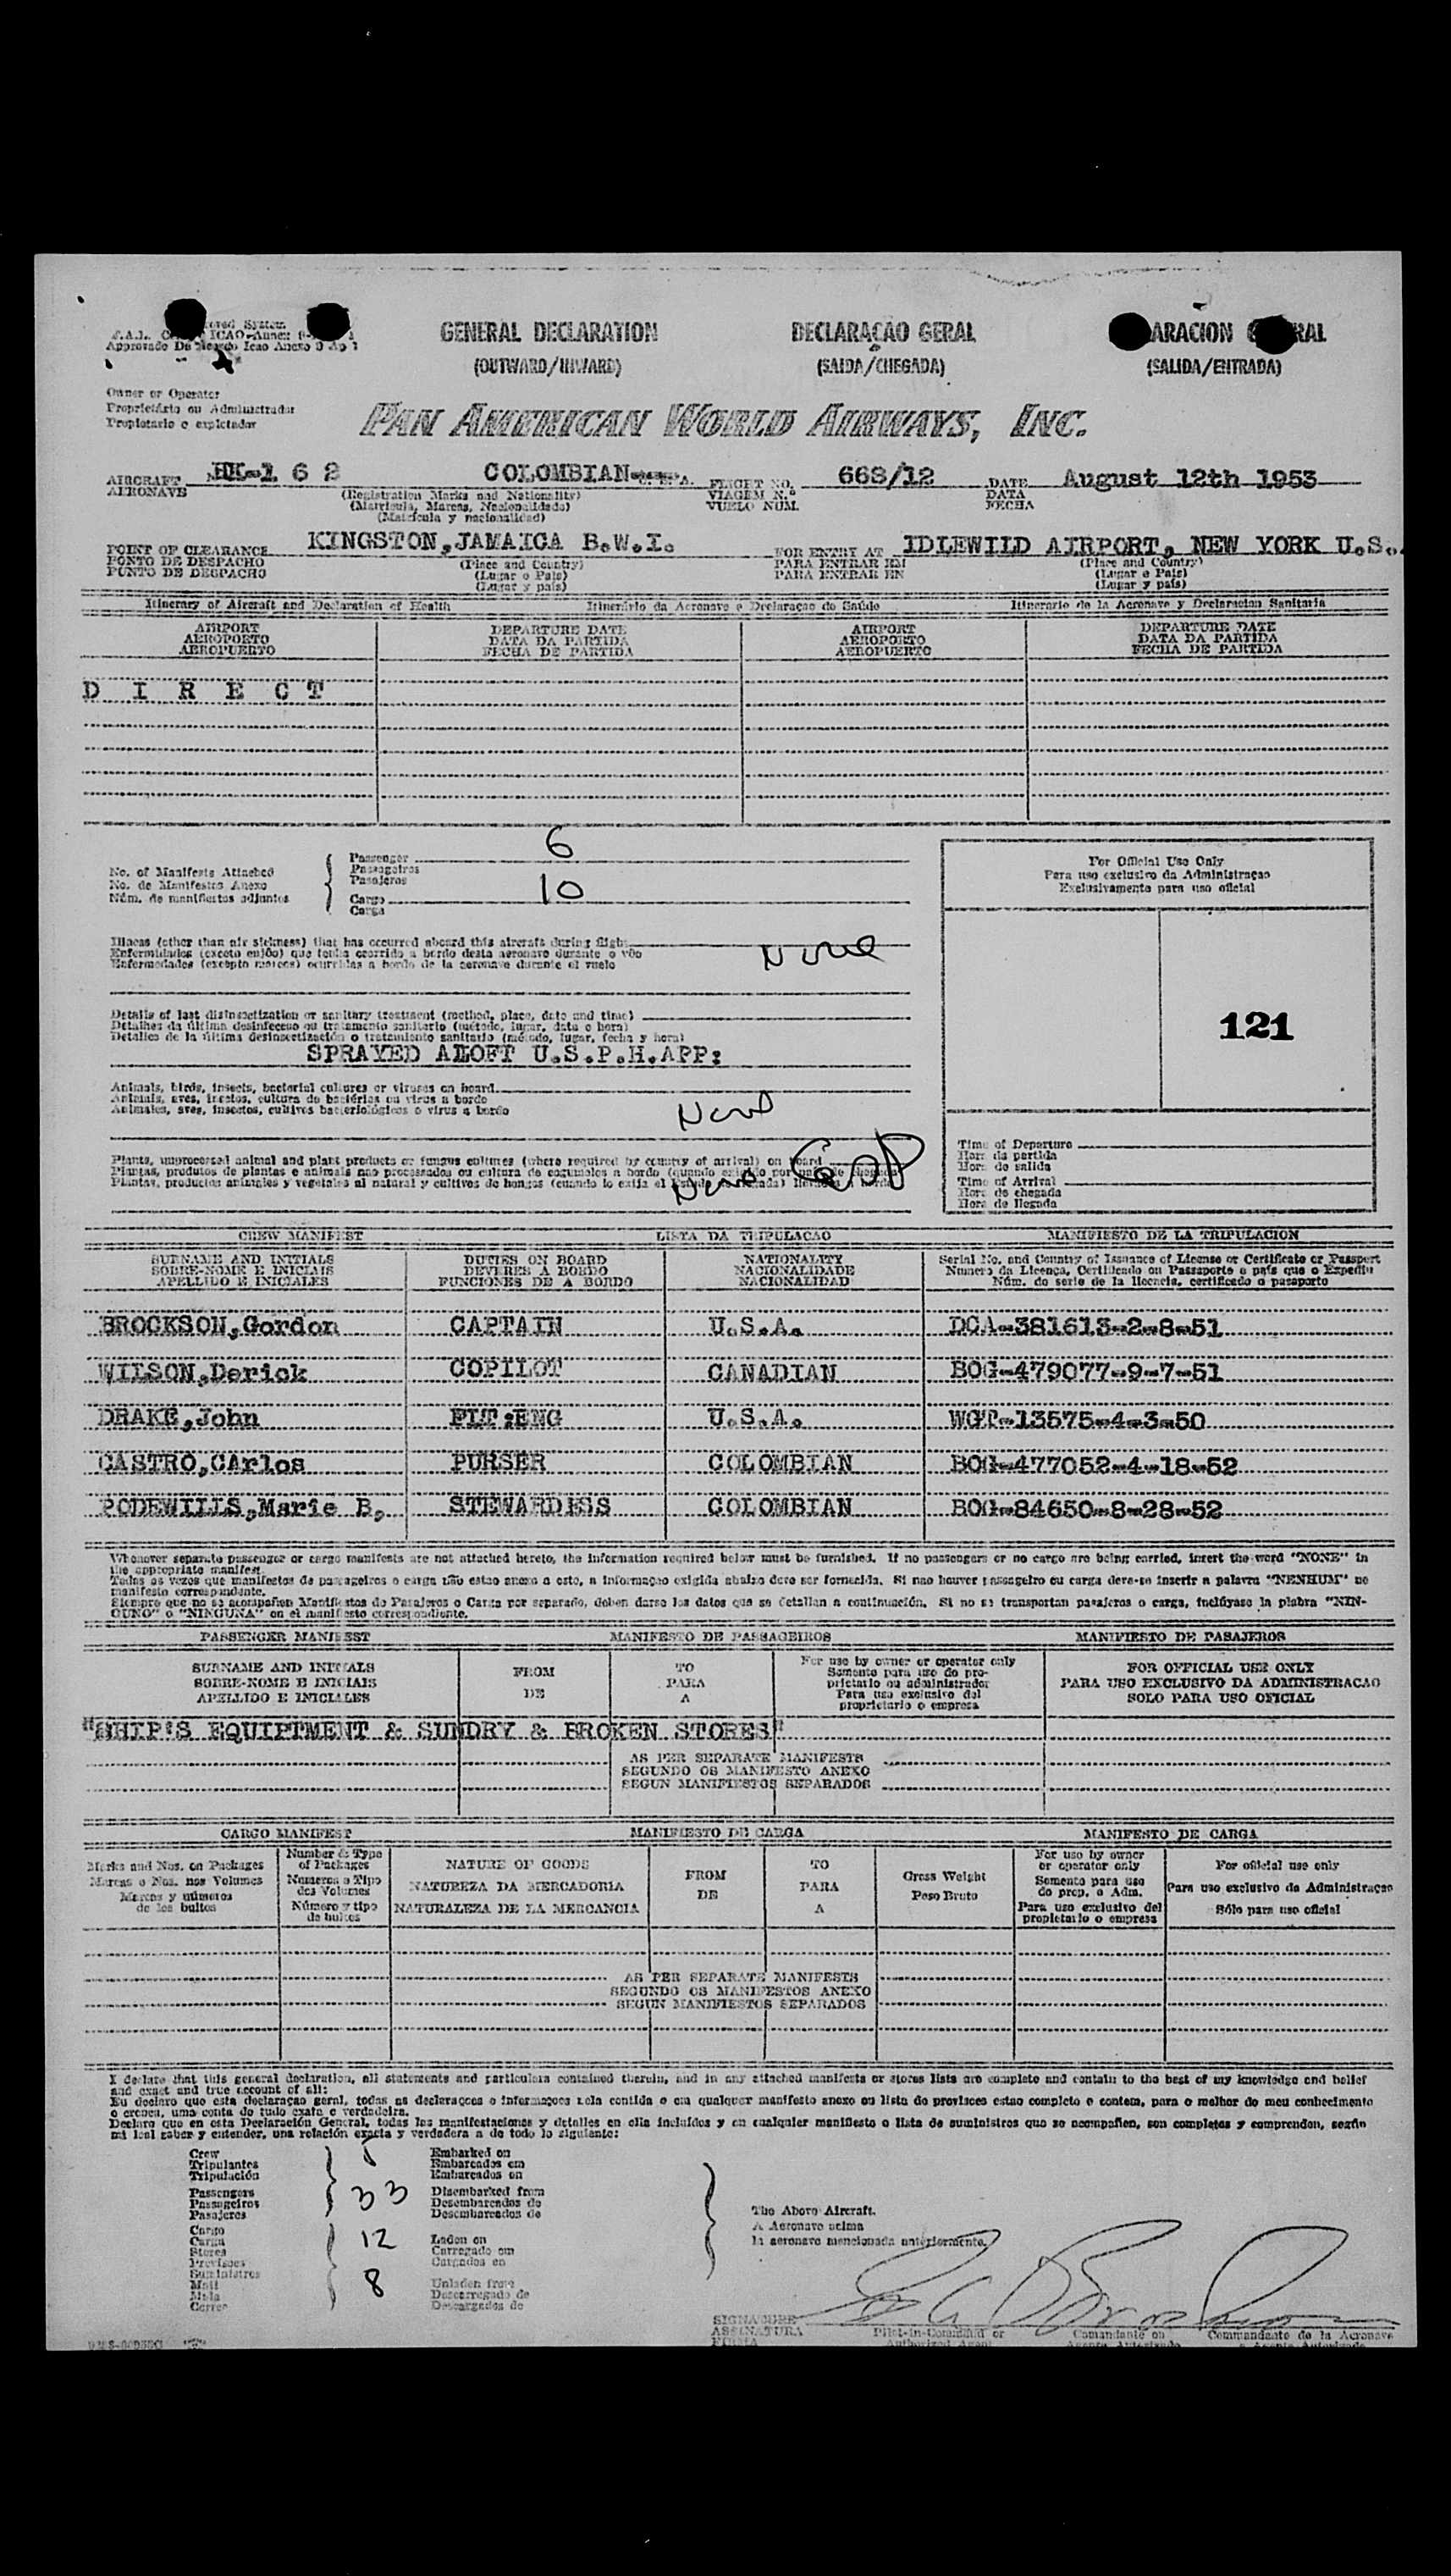 GENERAL DECLARATION
(OUTWARD/INWARD)
DECLARAÇAO GERAL
(SAIDA/CHEGADA)
ARACION RAL
(SALIDA/ENTRADA)
System
ICAO-Annex
Approvado De Icao Anexo 9 Ap 1
Owner or Operator
Proprietário ou Administrador
Propietario o explotador
PAN AMERICAN WORLD AIRWAYS, INC.
AIRCRAFT HK-1 6 2 COLOMBIAN FLIGHT NO. 668/12 DATE August 12th 1953
AERONAVE (Registration Marks and Nationality) VIAGEM N.º DATA
(Matricula, Marcas, Nacionalidade) VUELO NUM. FECHA
(Matrícula y nacionalidad)
POINT OF CLEARANCE KINGSTON,JAMAICA B.W.I. FOR ENTRY AT IDLEWILD AIRPORT, NEW YORK U.S.
PONTO DE DESPACHO (Place and Country) PARA ENTRAR EM (Place and Country)
PUNTO DE DESPACHO (Lugar o Pais) PARA ENTRAR EN (Lugar e Pais)
(Lugar y país) (Lugar y país)
Itinerary of Aircraft and Declaration of Health Itinerário da Aeronave e Declaraçao de Saúde Itinerario de la Aeronave y Declaracion Sanitaria
AIRPORT DEPARTURE DATE AIRPORT DEPARTURE DATE
AEROPORTO DATA DA PARTIDA AEROPORTO DATA DA PARTIDA
AEROPUERTO FECHA DE PARTIDA AEROPUERTO FECHA DE PARTIDA
D I R E C T
No. of Manifests Attached
No. de Manifestos Anexo
Núm. de manifiestos adjuntos
Passenger 6
Passageiros
Pasajeros
Cargo 10
Carga
For Official Use Only
Para uso exclusivo da Administraçao
Exclusivamente para uso oficial
121
Illness (other than air sickness) that has occurred aboard this aircraft during flight
Enfermidades (exceto enjôo) que tenha ocorrido a bordo desta aeronave durante o vôo None
Enfermedades (excepto mareos) ocurridas a bordo de la aeronave durante el vuelo
Details of last disinsectization or sanitary treatment (method, place, date and time)
Detalhes da última desinfeccao ou tratamento sanitario (método, lugar, data e hora)
Detalles de la última desinsectización o tratamiento sanitario (método, lugar, fecha y hora)
SPRAYED ALOFT U.S.P.H.APP:
Animals, birds, insects, bacterial cultures or viruses on board
Animais, aves, insetos, cultura de bactérias ou virus a bordo
Animales, aves, insectos, cultivos bacteriológicos o virus a bordo
None
Plants, unprocessed animal and plant products or fungus cultures (where required by country of arrival) on board
Plantas, produtos de plantas e animais nao processados ou cultura de cogumelos a bordo (quando
Plantas, productos animales y vegetales al natural y cultivos de hongos (cuando lo exija el
None
Time of Departure
Hora da partida
Hora de salida
Time of Arrival
Hora de chegada
Hora de llegada
CREW MANIFEST LISTA DA TRIPULACAO MANIFIESTO DE LA TRIPULACION
SURNAME AND INITIALS DUTIES ON BOARD NATIONALITY Serial No. and Country of Issuance of License or Certificate or Passport
SOBRE-NOME E INICIAIS DEVERES A BORDO NACIONALIDADE Numero da Licença, Certificado ou Passaporte o país que o Expediu
APELLIDO E INICIALES FUNCIONES DE A BORDO NACIONALIDAD Núm. de serie de la licencia, certificado o pasaporte
BROCKSON,Gordon CAPTAIN U.S.A. DCA-381613-2-8-51
WILSON,Derick COPILOT CANADIAN BOG-479077-9-7-51
DRAKE,John FLT:ENG U.S.A. 13575-4-3-50
CASTRO,CArlos PURSER COLOMBIAN BOG-477052-4-18-52
PODEWILLS,Marie B, STEWARDESS COLOMBIAN BOG-84650-8-28-52
Whenever separate passenger or cargo manifests are not attached hereto, the information required below must be furnished. If no passengers or no cargo are being carried, insert the word "NONE" in
the appropriate manifest.
Todas as vezes que manifestos de passageiros o carga não estao anexo a este, a informaçao exigida abaixo deve ser fornecida. Si nao houver passageiro ou carga deve-se inserir a palavra "NENHUM" no
manifesto correspondente.
Siempre que no se acompañen Manifiestos de Pasajeros o Carga por separado, deben darse los datos que se detallan a continuación. Si no se transportan pasajeros o carga, inclúyase la plabra "NIN-
GUNO" o "NINGUNA" en el manifiesto correspondiente.
PASSENGER MANIFEST MANIFESTO DE PASSAGEIROS MANIFIESTO DE PASAJEROS
SURNAME AND INITIALS FROM TO For use by owner or operator only FOR OFFICIAL USE ONLY
SOBRE-NOME E INICIAIS DE PARA Somente para uso do pro- PARA USO EXCLUSIVO DA ADMINISTRACAO
APELLIDO E INICIALES A prietario ou administrador SOLO PARA USO OFICIAL
Para uso exclusivo del
propietario o empresa
"SHIP'S EQUIPTMENT & SUNDRY & BROKEN STORES"
AS PER SEPARATE MANIFESTS
SEGUNDO OS MANIFESTO ANEXO
SEGUN MANIFIESTOS SEPARADOS
CARGO MANIFEST MANIFIESTO DE CARGA MANIFESTO DE CARGA
Marks and Nos. on Packages
Marcas e Nos. nos Volumes
Marcas y números
de los bultos
Number & Type
of Packages
Numeros e Tipo
dos Volumes
Número y tipo
de bultos
NATURE OF GOODS
NATUREZA DA MERCADORIA
NATURALEZA DE LA MERCANCIA
FROM
DE
TO
PARA
A
Gross Weight
Peso Bruto
For use by owner
or operator only
Somente para uso
do prop. o Adm.
Para uso exclusivo del
propietario o empresa
For official use only
Para uso exclusivo da Administraçao
Sólo para uso oficial
AS PER SEPARATE MANIFESTS
SEGUNDO OS MANIFESTOS ANEXO
SEGUN MANIFIESTOS SEPARADOS
I declare that this general declaration, all statements and particulars contained therein, and in any attached manifests or stores lists are complete and contain to the best of my knowledge and belief
and exact and true account of all:
Eu declaro que esta declaraçao geral, todas as declaraçoes o informaçoes nela contida o em qualquer manifesto anexo ou lista de provisoes estao completo e contem, para o melhor do meu conhecimento
e crenca, uma conta de tudo exata e verdadeira.
Declaro que en esta Declaración General, todas las manifestaciones y detalles en ella incluídos y en cualquier manifiesto o lista de suministros que se acompañen, son completos y comprenden, según
mi leal saber y entender, una relación exacta y verdadera a de todo lo siguiente:
Crew 5 Embarked on
Tripulantes Embarcados em
Tripulación Embarcados en
Passengers 33 Disembarked from
Passageiros Desembarcados de
Pasajeros Desembarcados de
Cargo
Carga 12 Laden on
Stores Carregado em
Provisoes Cargados en
Suministros
Mail 8 Unladen from
Mala Descarregado de
Correo Descargados de
The Above Aircraft.
A Aeronave acima
la aeronave mencionada anteriormente.
SIGNATURE
ASSINATURA Pilot-in-Command or Comandante ou Commandante de la Aeronave
FIRMA Authorized Agent Agente Autorizado o Agente Autorizado